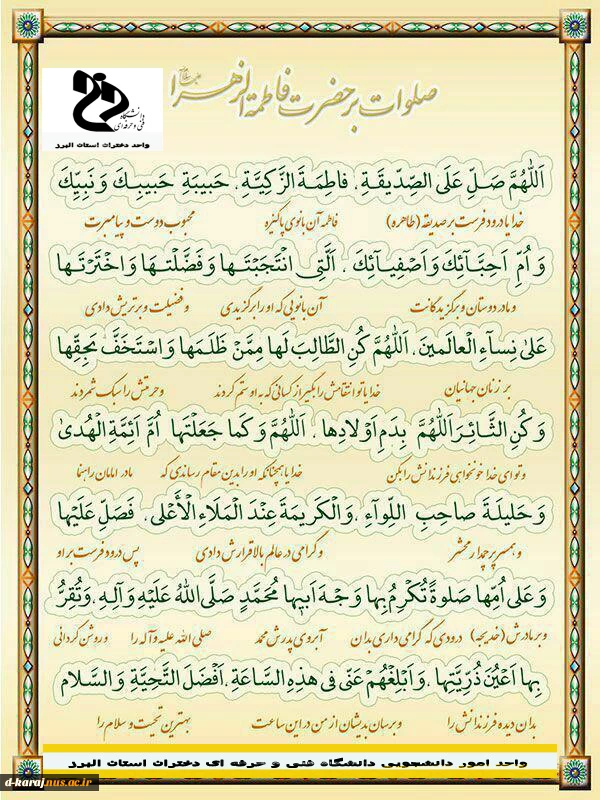 صلوات بر حضرت فاطمة الزهرا
دانشگاه
فنی و حرفه‌ای
واحد دختران استان البرز
اَللّٰهُمَّ صَلِّ عَلَی الصِّدّیقَةِ، فاطِمَةَ الزَّکِیَّةِ، حَبیبَةِ حَبیبِکَ وَ نَبِیِّکَ
خدایا درود فرست بر صدیقه (طاهره) فاطمه آن بانوی پاکیزه محبوب دوست و پیامبرت
وَ اُمِّ اَحِبَّآئِکَ وَ اَصْفِیآئِکَ، اَلَّتِی انْتَجَبْتَها وَ فَضَّلْتَها وَ اخْتَرْتَها
و مادر دوستان و برگزیدگانت آن بانویی که او را برگزیدی و فضیلت و برتریش دادی
عَلیٰ نِسآءِ الْعالَمینَ، اَللّٰهُمَّ کُنِ الطّالِبَ لَها مِمَّنْ ظَلَمَها وَ اسْتَخَفَّ بِحَقِّها
بر زنان جهانیان خدایا تو انتقامش را بگیر از کسانی که به او ستم کردند و حرمتش را سبک شمردند
وَ کُنِ الثّائِرَ اَللّٰهُمَّ بِدَمِ اَوْلادِها، اَللّٰهُمَّ وَ کَما جَعَلْتَها اُمَّ اَئِمَّةِ الْهُدیٰ
و تو ای خدا خونخواهی فرزندانش را بکن خدایا همچنانکه او را بدین مقام رساندی که مادر امامان راهنما
وَ حَلیلَةَ صاحِبِ اللِّوآءِ، وَ الْکَریمَةَ عِنْدَ الْمَلَاءِ الْأَعْلی، فَصَلِّ عَلَیْها
و همسر پرچمدار محشر و گرامی در عالم بالا قرارش دادی پس درود فرست بر او
وَ عَلی اُمِّها صَلوةً تُکْرِمُ بِها وَجْهَ اَبیها مُحَمَّدٍ صَلَّی اللهُ عَلَیْهِ وَ آلِهِ، وَ تُقِرُّ
و بر مادرش (خدیجه) درودی که گرامی داری بدان آبروی پدرش محمد صلی الله علیه و آله را و روشن گردانی
بِها اَعْیُنَ ذُرِّیَّتِها، وَ اَبْلِغْهُمْ عَنّی فی هذِهِ السّاعَةِ، اَفْضَلَ التَّحِیَّةِ وَ السَّلام
بدان دیده فرزندانش را و برسان بدیشان از من در این ساعت بهترین تحیت و سلام را
واحد امور دانشجویی دانشگاه فنی و حرفه ای دختران استان البرز
d-karaj.nus.ac.ir